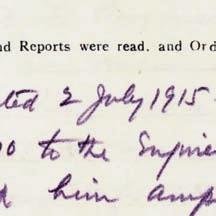 nd Reports were read. and Ord
ted 2 July 1915.
to the Engine
him amp